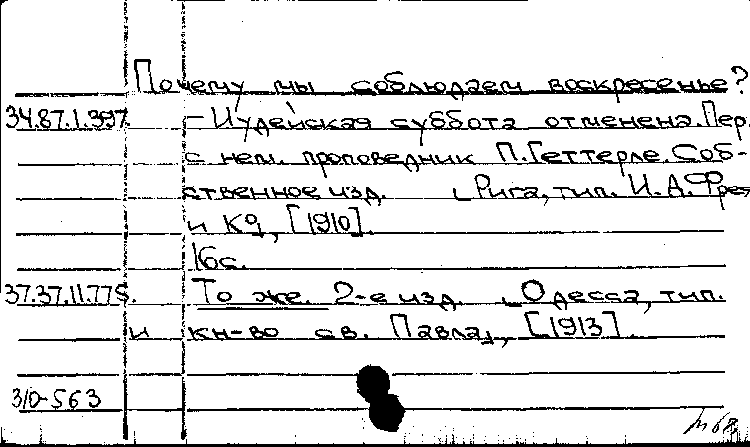 Почему мы соблюдаем воскресенье?
34.87.1.397. - Иудейская суббота отменена. Пер.
с нем. проповедник П. Геттерле. Соб-
ственное изд. Рига, тип. И. А. Фрея
и К⁰, [1910].
16 с.
37.37.11.775. То же. 2-е изд. Одесса, тип.
и кн-во св. Павла, [1913].
3/0-563